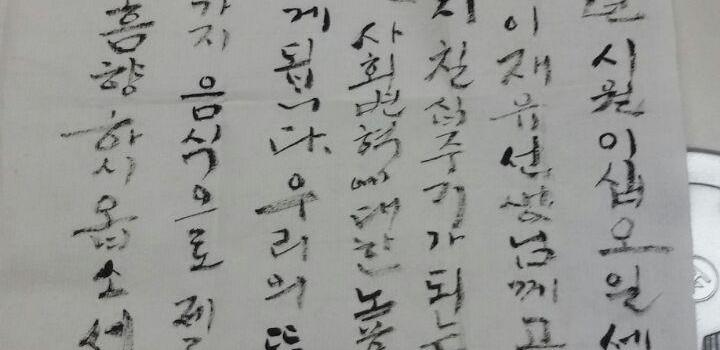 시월 이십오일
이재유 선생님께 고
칠십주기가 되는
사회변혁에 대한 높
게 됩니다. 우리의
가지 음식으로 제
흠향하시옵소서